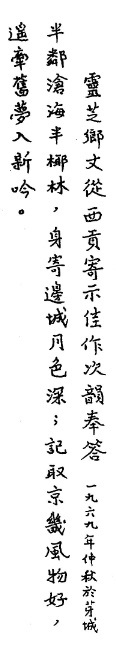 靈芝鄉丈從西貢寄示佳作次韻奉答 一九六九年仲秋於芽城
半鄰滄海半椰林，身寄邊城月色深；記取京畿風物好，
遥牽舊夢入新吟。